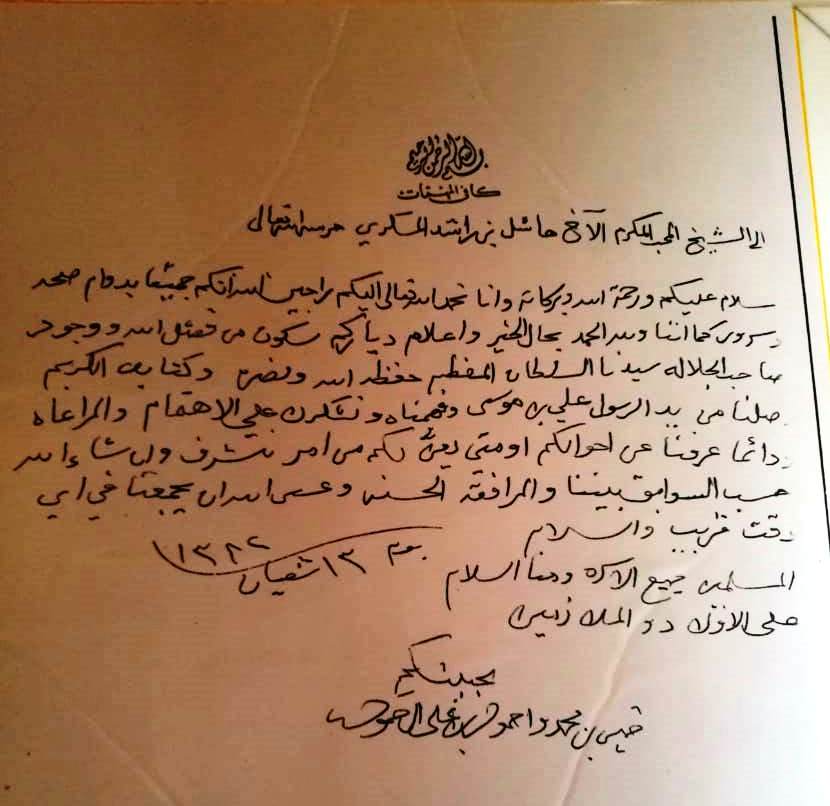 بسم الله الرحمن الرحيم
كافي المهمات
الى الشيخ المحب المكرم الاخ هاشل بن راشد المسكري حرسه الله تعالى
سلام عليكم ورحمة الله وبركاته وانا نحمد الله تعالى اليكم راجين الله انكم جميعا بدوام صحه
وسرور كما اننا ولله الحمد بحال الخير واعلام دياركم سكون من فضل الله ووجود
صاحب الجلاله سيدنا السلطان المعظم حفظه الله ونصره وكتابك الكريم
وصلنا من يد الرسول علي بن موسى وفهمناه ونشكرك على الاهتمام والمراعاه
ودائما عرفنا عن احوالكم او متى يعن لكم من امر نتشرف وان شاء الله
حسب السوابق بيننا والمرافقة الحسنه وعسى الله ان يجمعنا في اي
وقت قريب والسلام
يوم ١٣ شعبان ١٣٨٢
المسلمين جميع ومنا السلام
على الاخوان
محبكم
بن محمد بن علي